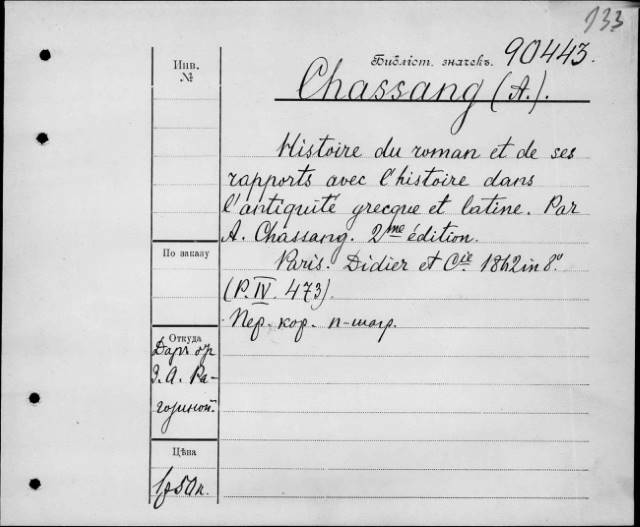 133
Инв.
№
Библіот. значекъ. 90443.
Chassang (A.).
Histoire du roman et de ses
rapports avec l'histoire dans
l'antiquité grecque et latine. Par
A. Chassang. 2me édition.
Paris. Didier et Cie. 1862 in 8o
(P. IV. 473).
Пер. кор. п-шагр.
По заказу
Откуда
Даръ
З. А. Ра-
гозиной.
Цѣна
1р 50к.